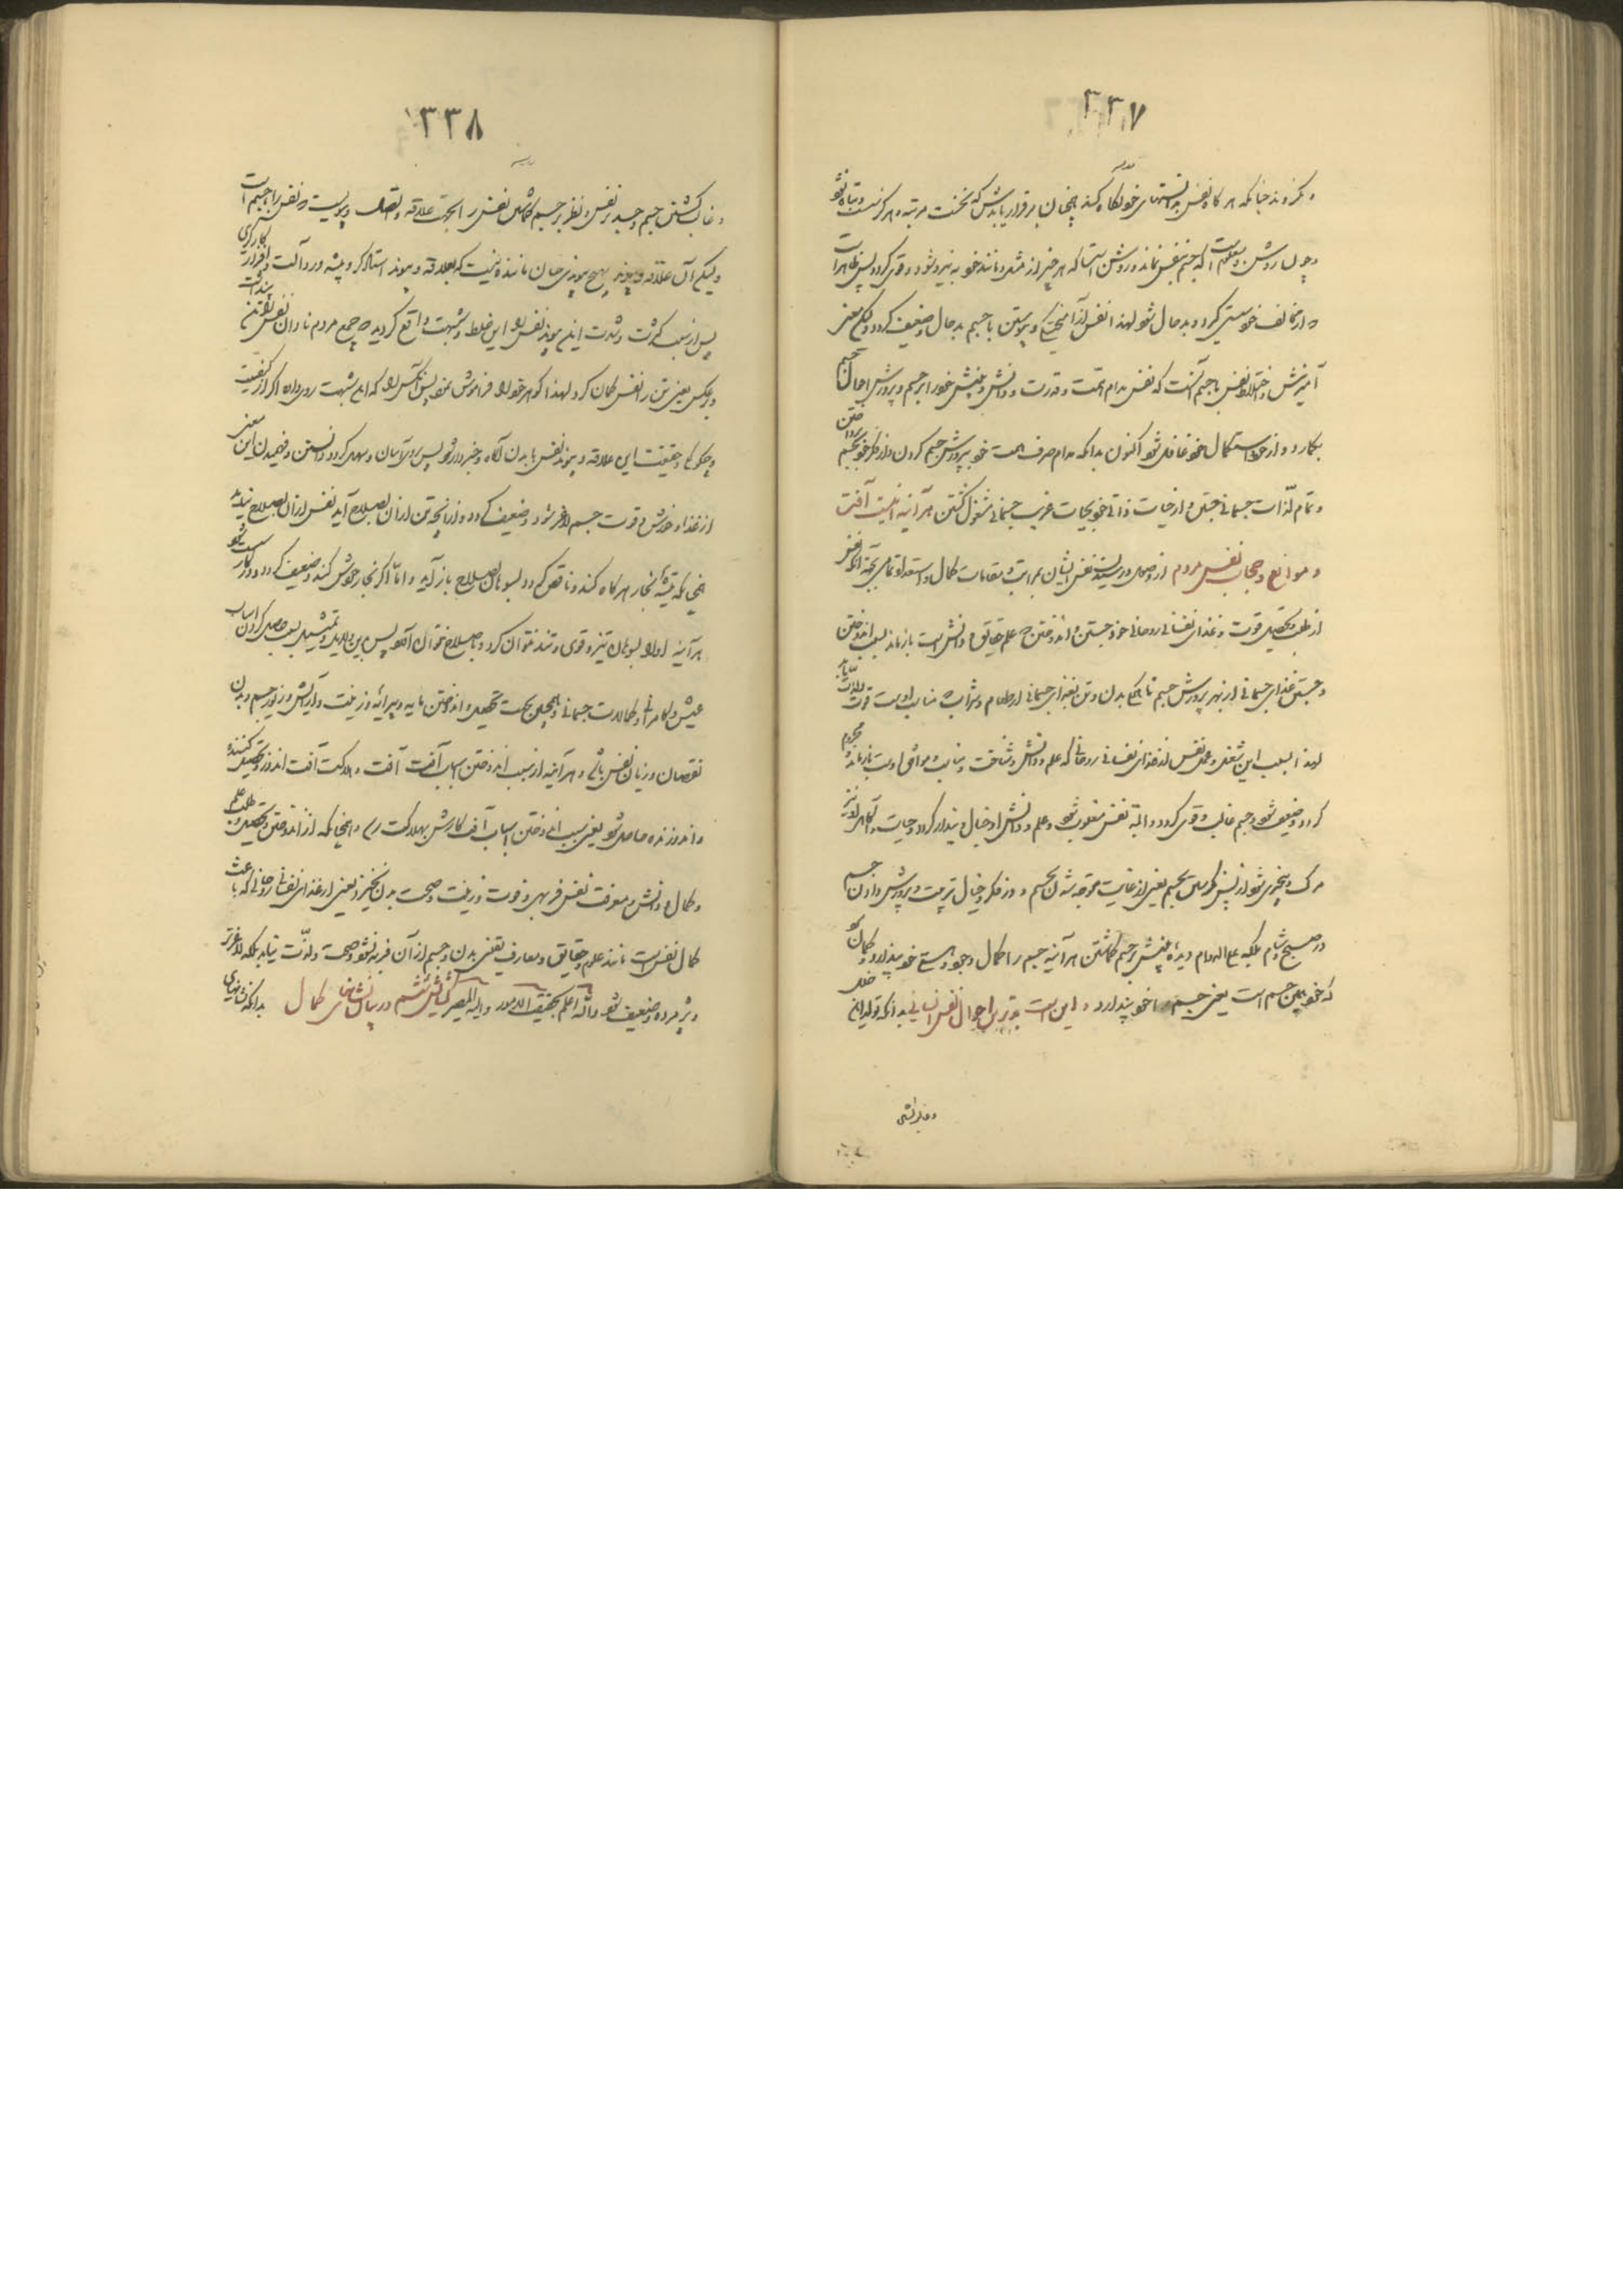 ٣٣٧
و بگروند چنانکه هر گاه نفس بدانستنهای خود نگاه کند همچنان برقرار یابدش که نخست مرتبه و هرگز نیست و تباه نشود
و چون روشن و معلومست که جسم بنفس نماند و روشن است که هر چیز از مثل و مانند خود به نیرو شود و قوی گردد پس ظاهر است
و از مخالف خود سستی گیرد و بدحال شود لهذا نفس از آمیختگی و پیوستن با جسم بدحال و ضعیف گردد و لیکن معنی
آمیزش و اختلاط نفس با جسم آنست که نفس مدام همت و قدرت و دانش و بینش خود را بر جسم و پرورش احوال جسم
بگمارد و از خود و استکمال خود غافل شود اکنون بدانکه مدام صرف همت خود بپرورش جسم کردن و از فکر خود بجسم پرداختن
و تمام لذات جسمانی جستن و از حیات ذاتی خود بحیات غریب جسمانی مشغول گشتن هر آئینه اینست آفت
و موانع و حجاب نفس مردم از وصول و رسیدن نفس ایشان بمراتب و مقامات کمال و استعداد تمامی بجهة آنکه نفس
از طلب و تحصیل قوت و غذای نفسانی روحانی خود جستن و اندوختن علم حقایق و دانش است باز ماند بسبب اندوختن
و جستن غذای جسمانی از بهر پرورش جسم تا هیکل بدن و تن بغذای جسمانی از طعام و شراب که مناسب اوست قوت و لذات یابد
لهذا بسبب این شغل و عمل نفس از غذای نفسانی روحانی که علم و دانش و شناخت و مناسب و موافق اوست باز ماند و محروم
گردد و ضعیف شود و جسم غالب و قوی گردد و البته نفس مغلوب شود و علم و دانش او خیال و پندار گردد و حیات و آگاهی او نیز
مرگ و بیخبری شود از پس نگریستن بجسم یعنی از غایت متوجه شدن بجسم و در فکر و خیال تربیت و پرورش دادن جسم
در صبح و شام بلکه علی الدوام دیده بینش بر جسم گماشتن هر آئینه جسم را کمال وجود و هستی خود پندارد و گمان کند
که خود همین جسم است یعنی جسم را خود پندارد و این است بدترین احوال نفس انسانی بدانکه تولید این خلل
٣٣٨
و غالب گشتن جسم و جسد بر نفس و نظر بر جسم گماشتن نفس را بجهت علاقه و اتصال و پیوست نفس را با جسم است
و لیکن آن علاقه و پیوند بهیچ پیوندی چنان ماننده نیست که بعلاقه و پیوند استاد کارگر و پیشه‌ور و آلت و افزار کارگری
پس از سبب کثرت و شدت این پیوند نفس را این غلط و شبهت واقع گردیده و جمع مردم نادان نفس را تن پنداشت
و بر عکس یعنی تن را نفس گمان کرد لهذا گوهر خود را فراموش نمود پس آنکس را که این شبهت روی داد اگر از کیفیت
و چگونگی و حقیقت این علاقه و پیوند نفس با بدن آگاه و خبردار شود پس بر او آسان و سهل گردد دانستن و فهمیدن این معنی
از غذا و خورش و قوت جسم لاغر شود و ضعیف گردد و از آنچه تن از آن بصلاح آید نفس از آن بصلاح نیاید
همچنانکه تیشه نجار هر گاه کند و ناقص گردد بسوهان بصلاح باز آید و اما اگر نجار خودش کند و ضعیف گردد و در کار سست شود
هر آینه او را بسوهان تیز و قوی و تند نتوان کرد و باصلاح نتوان آورد پس بدین دلیل و تمثیل بسبب حاصل کردن اسباب
عیش و کامرانی و کمالات جسمانی و همچنین بجهت تحصیل و اندوختن مایه و پیرایه و زینت و آرایش و زیور جسم و بدن
نقصان و زیان نفس باشد و هر آئینه از سبب اندوختن اسباب آفت آفت و هلاکت آفت اندوز و تحصیل کننده
و اندوزنده حاصل شود یعنی بسبب اندوختن اسباب آفت کارش بهلاکت رسد و همچنانکه از اندوختن و تحصیل و طلب علم
و کمال و دانش و معرفت نفس فربهی و قوت و زینت و صحت بدن نخیزد یعنی از غذای نفسانی روحانی که باعث
کمال نفس است مانند علوم و حقایق و معارف یقینی بدن و جسم از آن فربه نشود و صحت و لذت نیابد بلکه لاغرتر
و پژمرده و ضعیف شود والله اعلم بحقیقة الامور و الیه المصیر گشایش ششم در بیان نشانهای کمال بدانکه نشانهای